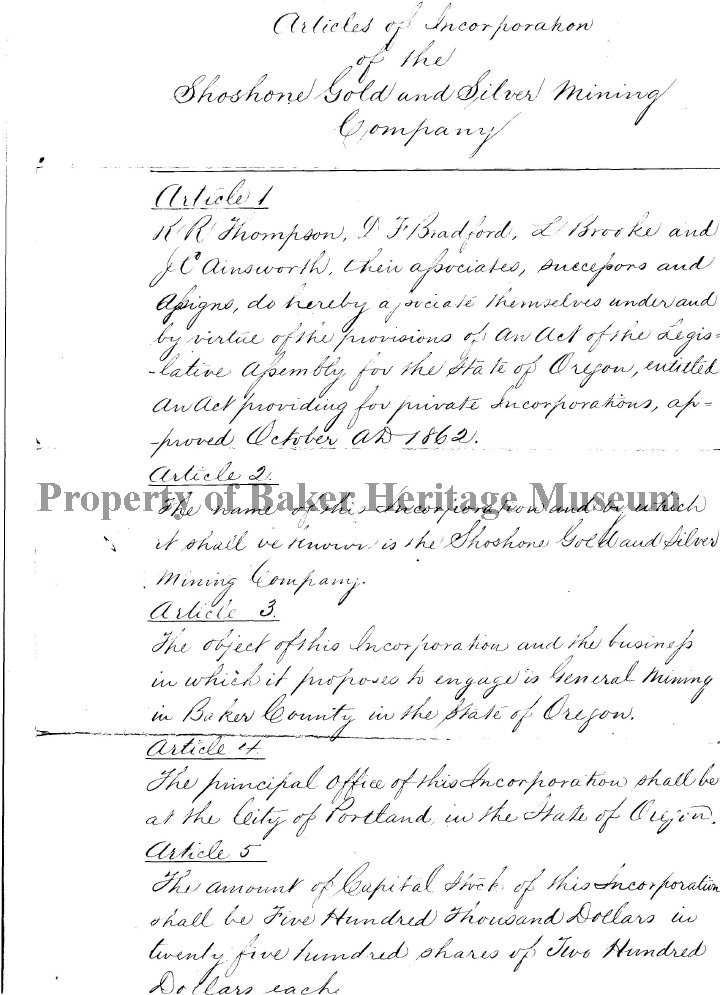 Articles of Incorporation
of the
Shoshone Gold and Silver Mining
Company
Article 1
R R Thompson, D F Bradford, L Brooke and
J C Ainsworth, their associates, successors and
Assigns, do hereby associate themselves under and
by virtue of the provisions of An Act of the Legis=
-lative Assembly for the State of Oregon, entitled
An Act providing for private Incorporations, ap-
-proved October AD 1862.
Article 2.
Property of Baker Heritage Museum
The name of this Incorporation and by which
it shall be known is the Shoshone Gold and Silver
Mining Company.
Article 3.
The object of this Incorporation and the business
in which it proposes to engage is General Mining
in Baker County in the State of Oregon.
Article 4.
The principal office of this Incorporation shall be
at the City of Portland, in the State of Oregon.
Article 5
The amount of Capital Stock of this Incorporation
shall be Five Hundred Thousand Dollars in
twenty five hundred shares of Two Hundred
Dollars each